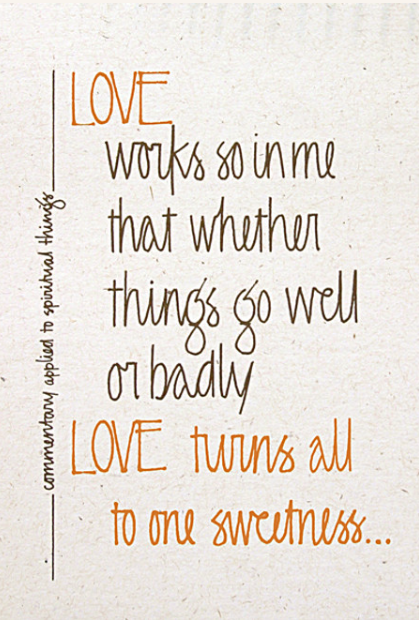 LOVE
works so in me
that whether
things go well
or badly
LOVE turns all
to one sweetness...
commentary applied to spiritual things